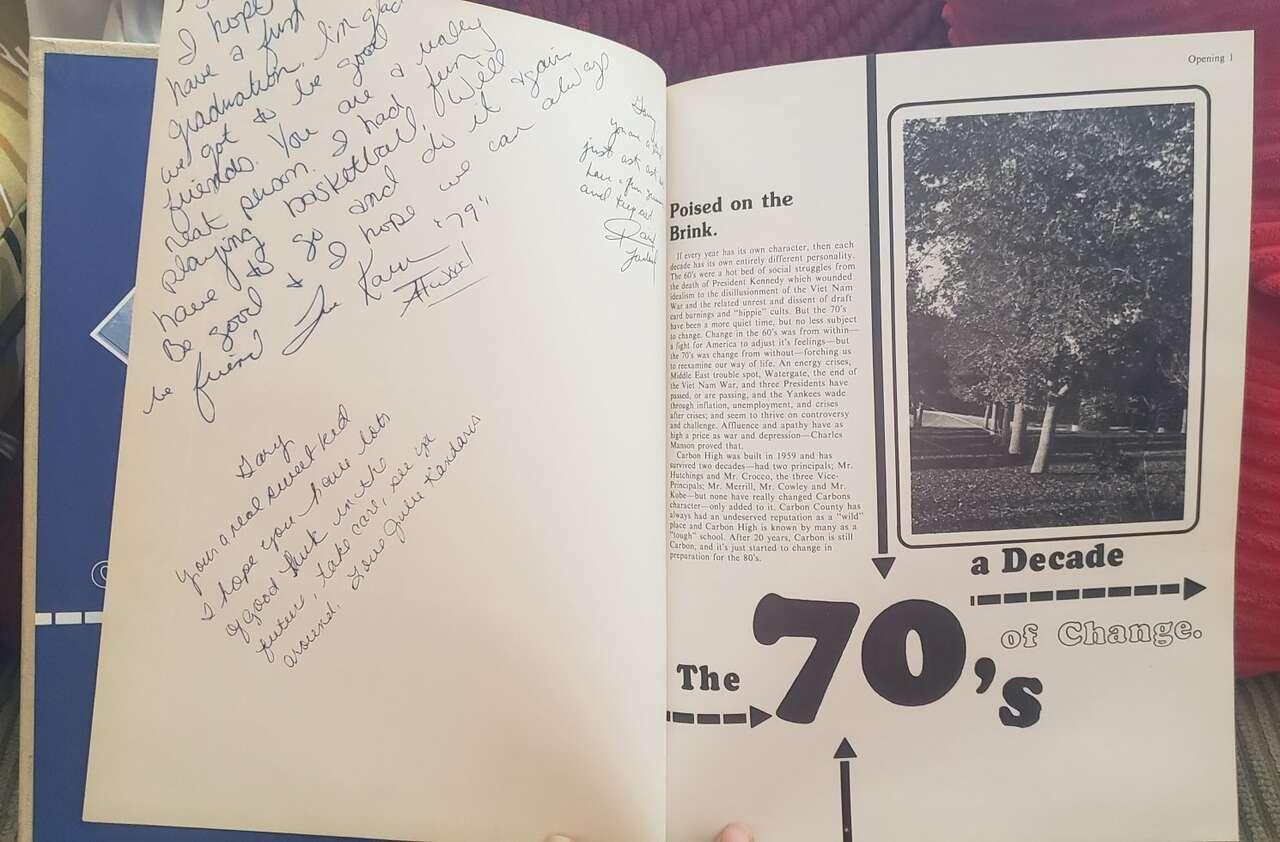 I hope
have a fun
graduation. I'm glad
we got to be good
friends. You are a really
neat person. I had fun
playing basketball. Well
have to go and do it again
Be good & I hope we can always
be friend
"79"
Gary
your a real sweet kid
I hope you have lots
of good luck in the
future, take care, see ya
around. Love Julie
just ask
have a fun
and
Opening 1
Poised on the
Brink.
If every year has its own character, then each
decade has its own entirely different personality.
The 60's were a hot bed of social struggles from
the death of President Kennedy which wounded
idealism to the disillusionment of the Viet Nam
War and the related unrest and dissent of draft
card burnings and "hippie" cults. But the 70's
have been a more quiet time, but no less subject
to change. Change in the 60's was from within—
a fight for America to adjust it's feelings—but
the 70's was change from without—forching us
to reexamine our way of life. An energy crises,
Middle East trouble spot, Watergate, the end of
the Viet Nam War, and three Presidents have
passed, or are passing, and the Yankees wade
through inflation, unemployment, and crises
after crises; and seem to thrive on controversy
and challenge. Affluence and apathy have as
high a price as war and depression—Charles
Manson proved that.
Carbon High was built in 1959 and has
survived two decades—had two principals; Mr.
Hutchings and Mr. Crocco, the three Vice-
Principals; Mr. Merrill, Mr. Cowley and Mr.
Kobe—but none have really changed Carbons
character—only added to it. Carbon County has
always had an undeserved reputation as a "wild"
place and Carbon High is known by many as a
"tough" school. After 20 years, Carbon is still
Carbon, and it's just started to change in
preparation for the 80's.
The 70's
a Decade
of Change.